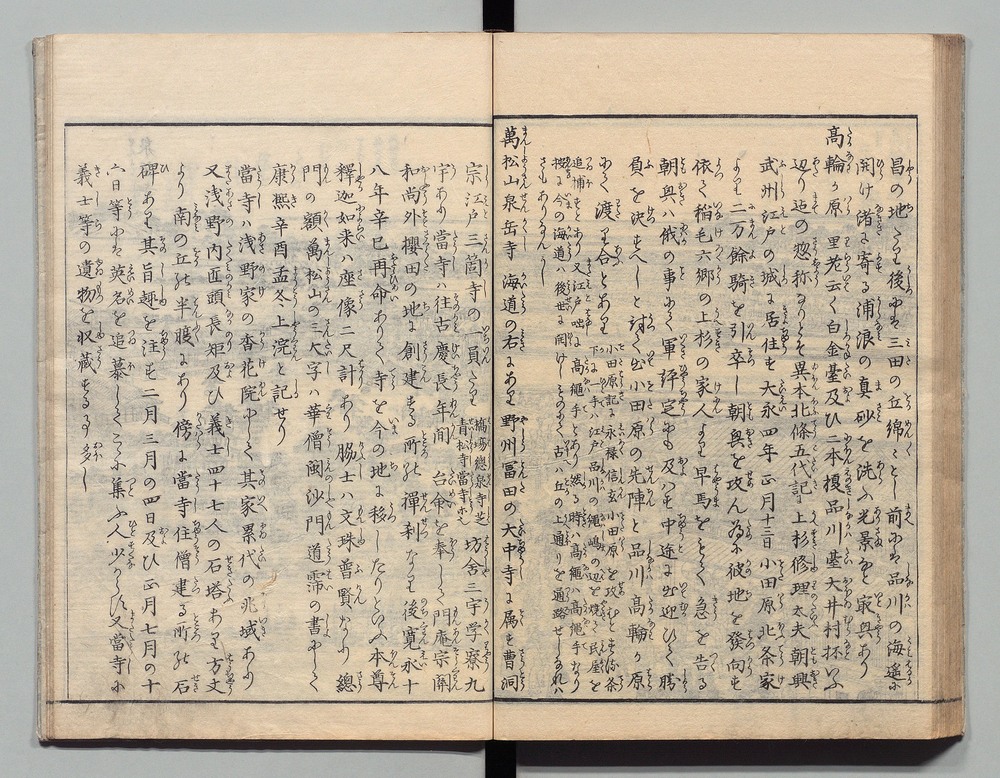 昌の地にして後には三田の丘綿々とし前には品川の海遥に
開け渚に寄る浦浪の真砂を洗ふ光景など最興あり
高輪か原 里老云く白金臺及ひ二本榎品川臺大井村抔いふ
辺り迄の惣称なりとそ異本北條五代記に上杉修理太夫朝興
武州江戸の城に居住す大永四年正月十三日小田原北条家
より二万餘騎を引卒し朝興を攻ん為に彼地を發向す
依て稲毛六郷の上杉の家人より早馬をもて急を告る
朝興ハ俄の事にて軍評定にも及ハす中途に出迎ひて勝
負を決すへしと討て出小田原の先陣と品川高輪か原
にて渡り合とあり
小田原記に永禄
下の一手ハ江戸品川の
追捕すとあり又江戸
萬松山泉岳寺 海道の右にあり野州冨田の大中寺に属す曹洞
宗江戸三箇寺の一員たり 橋場總泉寺芝
青松寺當寺等也 坊舎三宇学寮九
宇あり當寺ハ往古慶長年間 台命を奉して門庵宗關
和尚外櫻田の地に創建する所の禅刹なり後寛永十
八年辛巳再命ありて寺を今の地に移したりといふ本尊
釋迦如来ハ座像二尺計あり脇士ハ文珠普賢なり總
門の額萬松山の三大字ハ華僧閩沙門道霈の書にして
康熈辛酉孟冬上浣と記せり
當寺ハ浅野家の香花院にして其家累代の兆域あり
又浅野内匝頭長矩及ひ義士四十七人の石塔あり方丈
より南の丘の半腹にあり傍に當寺住僧建る所の石
碑あり其旨趣を注す二月三月の四日及ひ正月七月の十
六日等には英名を追慕してこゝに集ふ人少からす又當寺に
義士等の遺物を収蔵する事多し